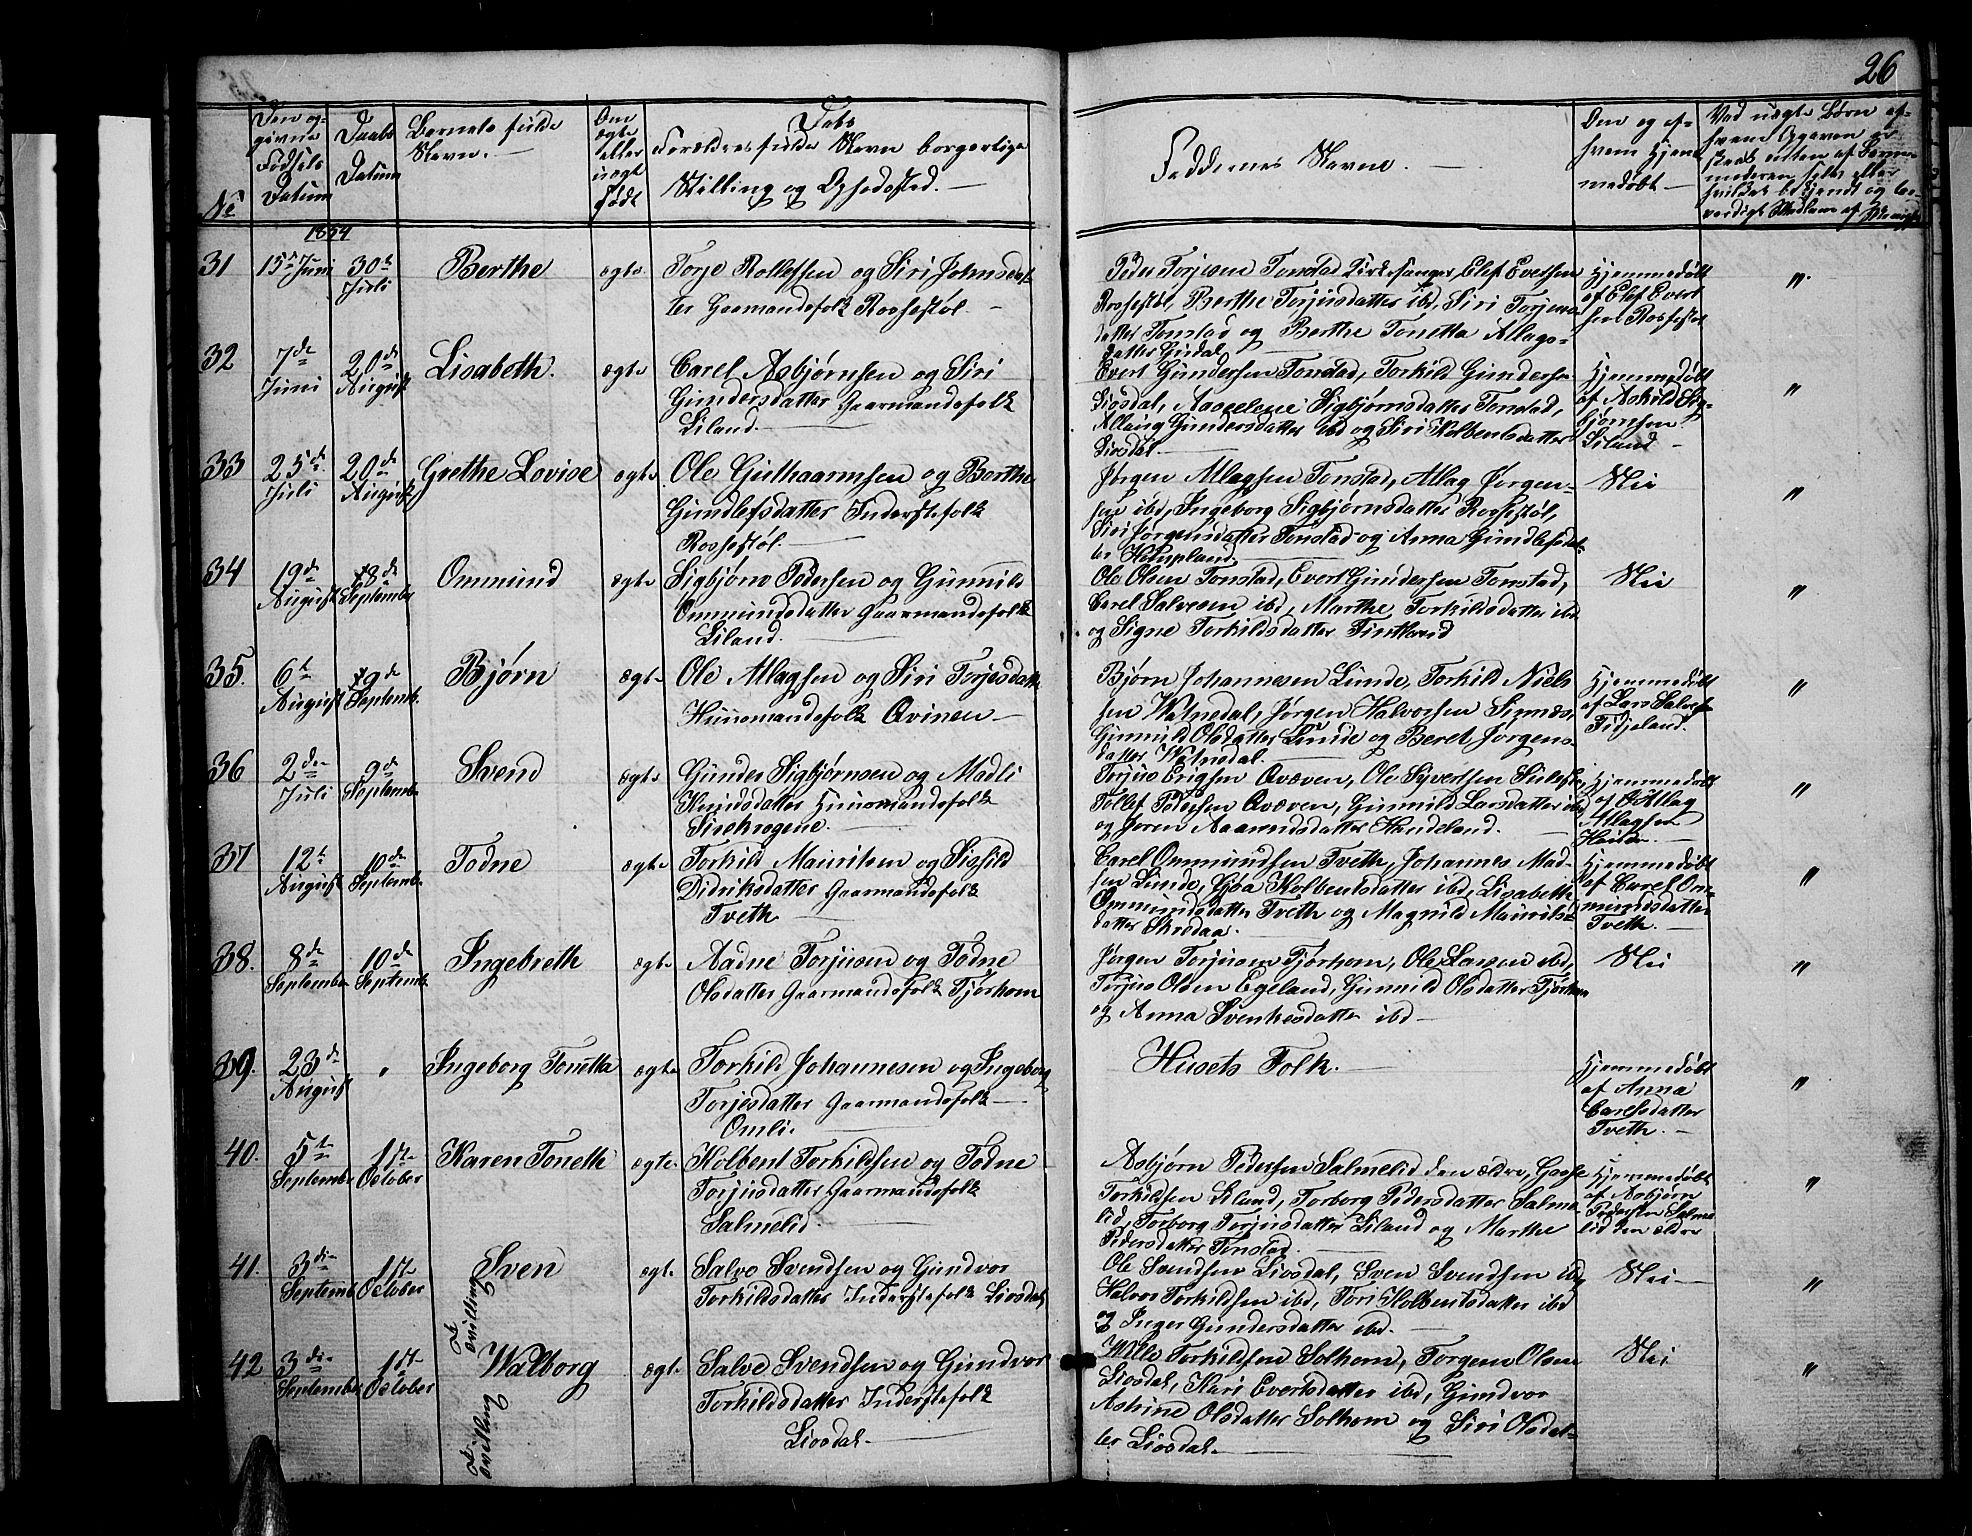 26
No
Den op-
givne
Födsels
Datum
Daabs
Datum
Barnets fulde
Navn. —
Om
ægte
eller
uægte
Født
Dets
Forældres fulde Navn borgerlige
Stilling og Opholdsted. —
Faddernes Navne. —
Om og af
hvem hjem
medøbt —
Ved uægte Børn af
hvem Opgaven er
1854
31
15de Juni
30te
Juli
Berthe
ægte
Torje Rollefsen og Siri Johnsdat
ter Gaarmandsfolk Rossestøl. —
Peder Torjesen Tonstad Kirkesanger, Elef Evertsen
Rossestøl, Berthe Torjusdatter ibd, Siri Torjus
datter Tonstad og Berthe Tonetta Atlags-
datter Gusdal
Hjemmedøbt
af Elef Evert
sen Rossestøl
"
32
7de
Juni
20de
August
Lisabeth.
ægte
Carel Asbjørnsen og Siri
Gundersdatter Gaarmandsfolk
Liland. —
Evert Gundersen Tonstad, Torkild Gundersen
Liosdal, Aaselene Sigbjørnsdatter Tonstad,
Atlaug Gundersdatter ibd og Siri Kolbentsdatter
Liosdal —
Hjemmedøbt
af Askild Sig-
bjørnsen
Liland —
"
33
25de
Juli
20de
August
Grethe Lovise
ægte
Ole Guthaarmsen og Berthe
Gundlefsdatter Inderstefolk
Rossestøl. —
Jørgen Atlagsen Tonstad, Atlag Jørgen-
sen ibd, Ingeborg Sigbjørnsdatter Rossestøl,
Siri Jørgensdatter Tonstad og Anna Gundlefsdat-
ter
Nei
"
34
19de
August
8de
September
Ommund
ægte
Sigbjørn Pedersen og Gunnild
Ommundsdatter Gaarmandsfolk
Liland. —
Ole Olsen Tonstad, Evert Gundersen Tonstad,
Carel Salvesen ibd, Marthe Torkildsdatter ibd
og Signe Torkildsdatter Fintland
Nei
"
35.
6te
August
9de
Septemb.
Bjørn
ægte
Ole Atlagsen og Siri Torjesdatter
Huusmandsfolk Qvinen —
Bjørn Johannesen Lunde, Torkild Niels
sen Watnedal, Jørgen Halvorsen Sinnes,
Gunnild Olsdatter Lunde og Beret Jørgens-
datter Watnedal.
Hjemmedøbt
af Lars Salves
Fidjeland.
"
36
2den
Juli
9de
Septemb
Svend
ægte
Gunder Sigbjørnsen og Madli
Knudsdatter Huusmandsfolk
Sirekrogene. —
Torjus Erigsen Qvæven, Ole Syvertsen
Tollef Pedersen Qvæven, Gunnild Larsdatter ibd
og Joren Aamundsdatter Handeland. —
Hjemmedøbt
af Atlag
Atlagsen
"
37
12te
August
10de
Septemb.
Todne
ægte
Torkild Mauritsen og Sigfild
Didriksdatter Gaarmandsfolk
Tveth —
Carel Ommundsen Tveth, Johannes Mad-
sen Lunde, Gjøa Kolbentsdatter ibd, Lisabeth
Ommundsdatter Tveth og Magnild Maurits-
datter Skredaa. —
Hjemmedøbt
af Carel Om-
mundsdatter
Tveth. —
"
38.
8de
September
10de
Septemb.
Ingebreth
ægte
Aadne Torjusen og Todne
Olsdatter Gaarmandsfolk Tjørhom
Jørgen Torjusen Tjørhom, Ole Larsen ibd,
Torjus Olsen Egeland, Gunnild Olsdatter Tjørhom
og Anna Svenkesdatter ibd —
Nei
"
39.
23de
August
"
Ingeborg Tonetta
ægte
Torkild Johannesen og Ingeborg
Torjesdatter Gaarmandsfolk —
Omli.
Husets Folk. —
Hjemmedøbt
af Anna
Carelsdatter
Tveth. —
"
40.
5te
September
1ste
October
Karen Tonette
ægte.
Kolbent Torkildsen og Todne
Torjusdatter Gaarmandsfolk
Salmelid. —
Asbjørn Pedersen Salmelid den ældre, Gaase
Torkildsen Liland, Torborg Pedersdatter Salme
lid, Torborg Torjusdatter Liland og Marthe
Pedersdatter Tonstad. —
Hjemmedøbt
af Asbjørn
Pedersen Salme
lid den eldre
"
41.
3die
Septemb
1ste
October
Sven
Tvilling
ægte
Salve Svendsen og Gundvor
Torkildsdatter Inderstefolk Liosdal
Ole Svendsen Liosdal, Sven Svendsen ibd,
Halvor Torkildsen ibd, Tori Kolbentsdatter ibd
og Inger Gundersdatter ibd. —
Nei —
"
42
3die
September
1ste
October
Walborg
Tvilling
ægte
Salve Svendsen og Gundvor
Torkildsdatter Inderstefolk
Liosdal. —
Wille Torkildsen Solhom, Torgeus Olsen
Liosdal, Kari Evertsdatter ibd, Gundvor
Astrine Olsdatter Solhom og Siri Olsdat-
ter Liosdal. —
Nei
"